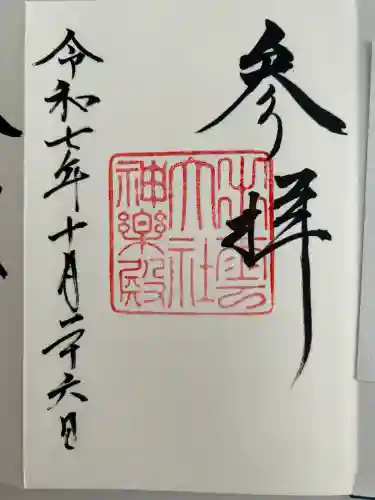 参拝
出雲
大社
神樂殿
令和七年十月二十六日